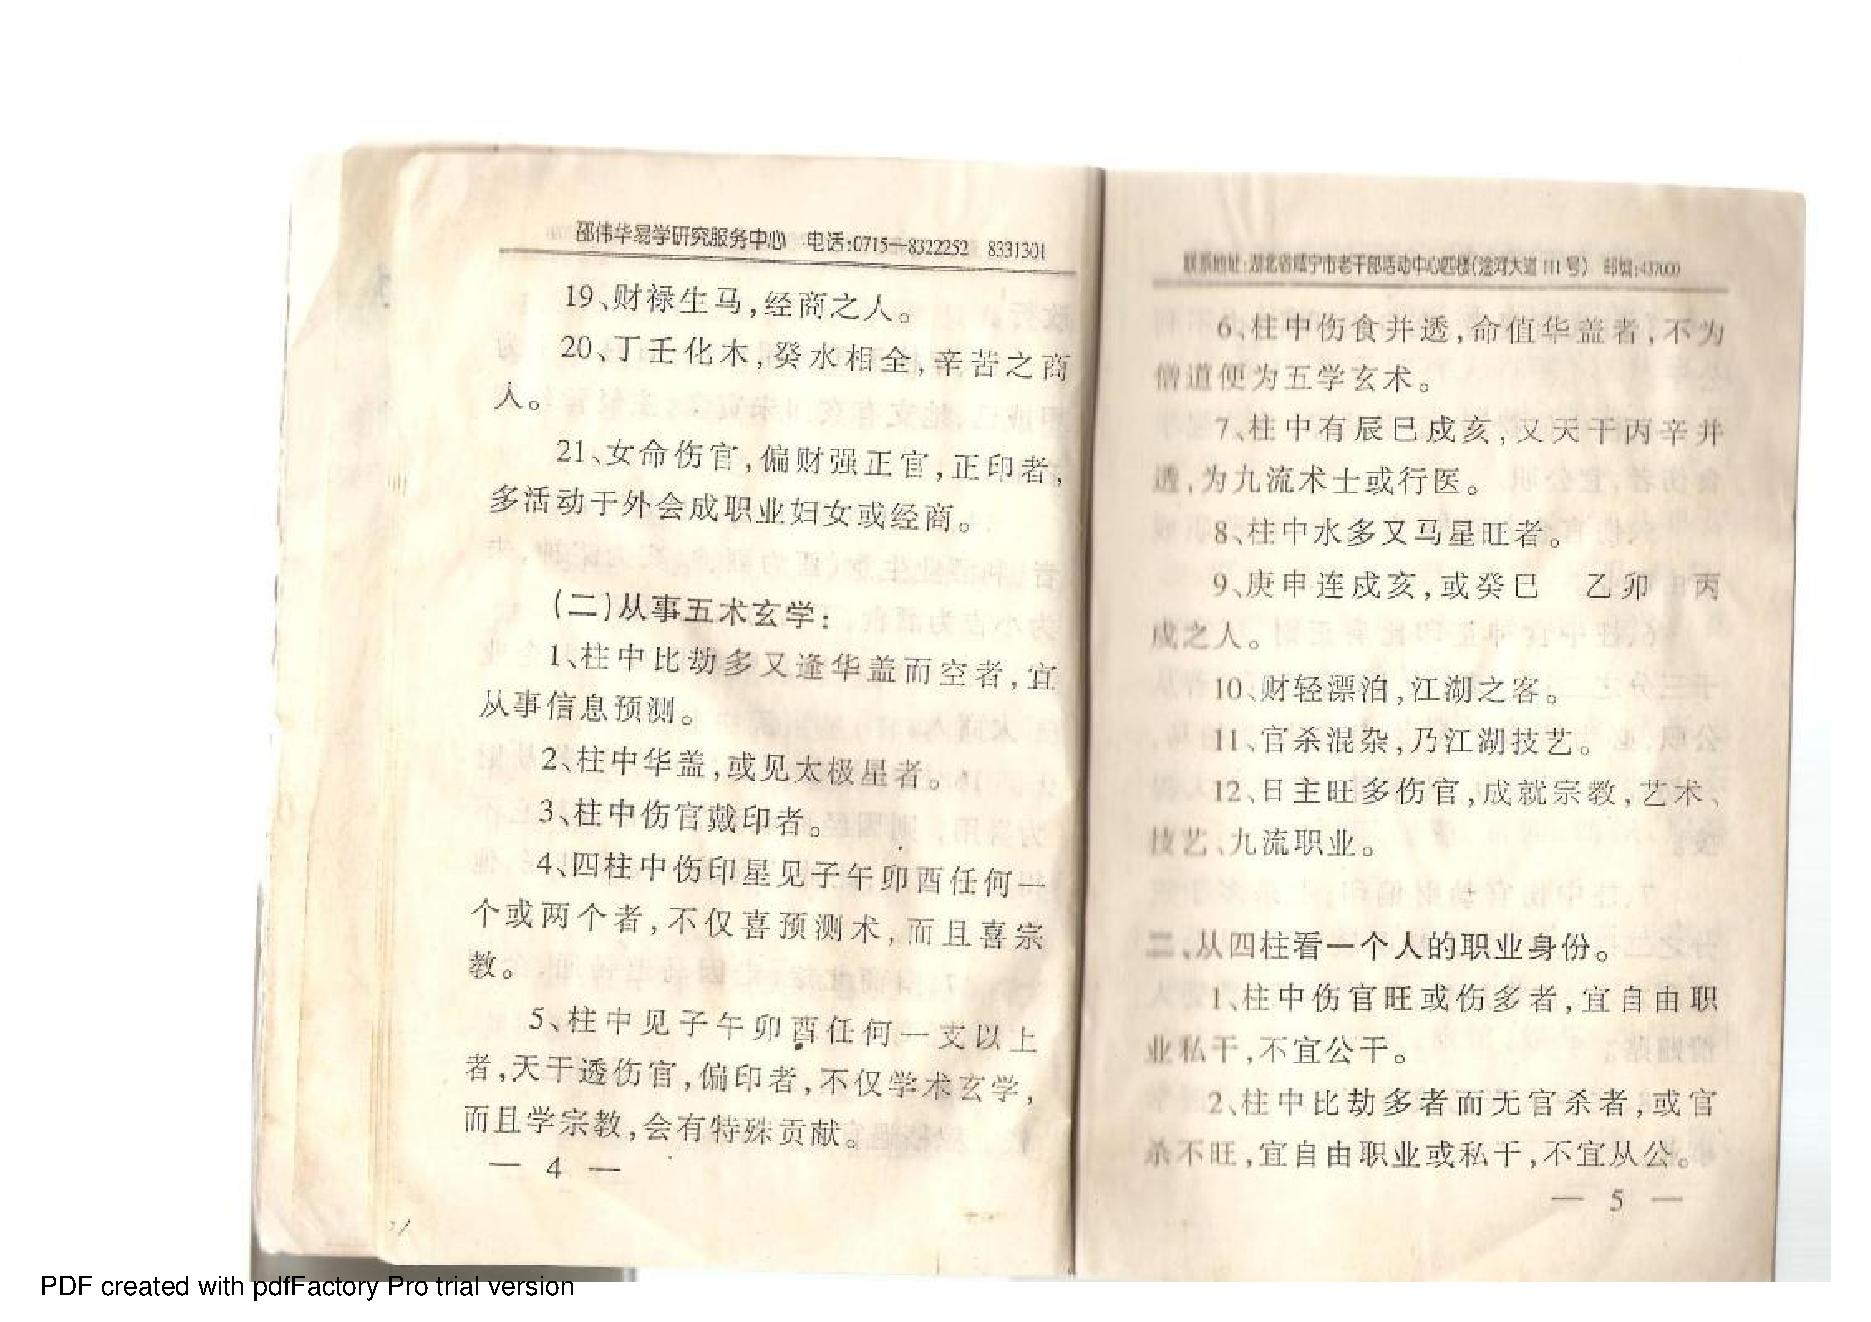 邵伟华易学研究服务中心 电话:0715—8322252 8331301
19、财禄生马,经商之人。
20、丁壬化木,癸水相全,辛苦之商
人。
21、女命伤官,偏财强正官,正印者,
多活动于外会成职业妇女或经商。
(二)从事五术玄学:
1、柱中比劫多又逢华盖而空者,宜
从事信息预测。
2、柱中华盖,或见太极星者。
3、柱中伤官戴印者。
4、四柱中伤印星见子午卯酉任何一
个或两个者,不仅喜预测术,而且喜宗
教。
5、柱中见子午卯酉任何一支以上
者,天干透伤官,偏印者,不仅学术玄学,
而且学宗教,会有特殊贡献。
— 4 —
联系地址:湖北省咸宁市老干部活动中心四楼(淦河大道111号) 邮编:437000
6、柱中伤食并透,命值华盖者,不为
僧道便为五学玄术。
7、柱中有辰巳戌亥,又天干丙辛并
透,为九流术士或行医。
8、柱中水多又马星旺者。
9、庚申连戌亥,或癸巳 乙卯 由丙
戌之人。
10、财轻漂泊,江湖之客。
11、官杀混杂,乃江湖技艺。
12、日主旺多伤官,成就宗教,艺术、
技艺、九流职业。
二、从四柱看一个人的职业身份。
1、柱中伤官旺或伤多者,宜自由职
业私干,不宜公干。
2、柱中比劫多者而无官杀者,或官
杀不旺,宜自由职业或私干,不宜从公。
— 5 —
PDF created with pdfFactory Pro trial version